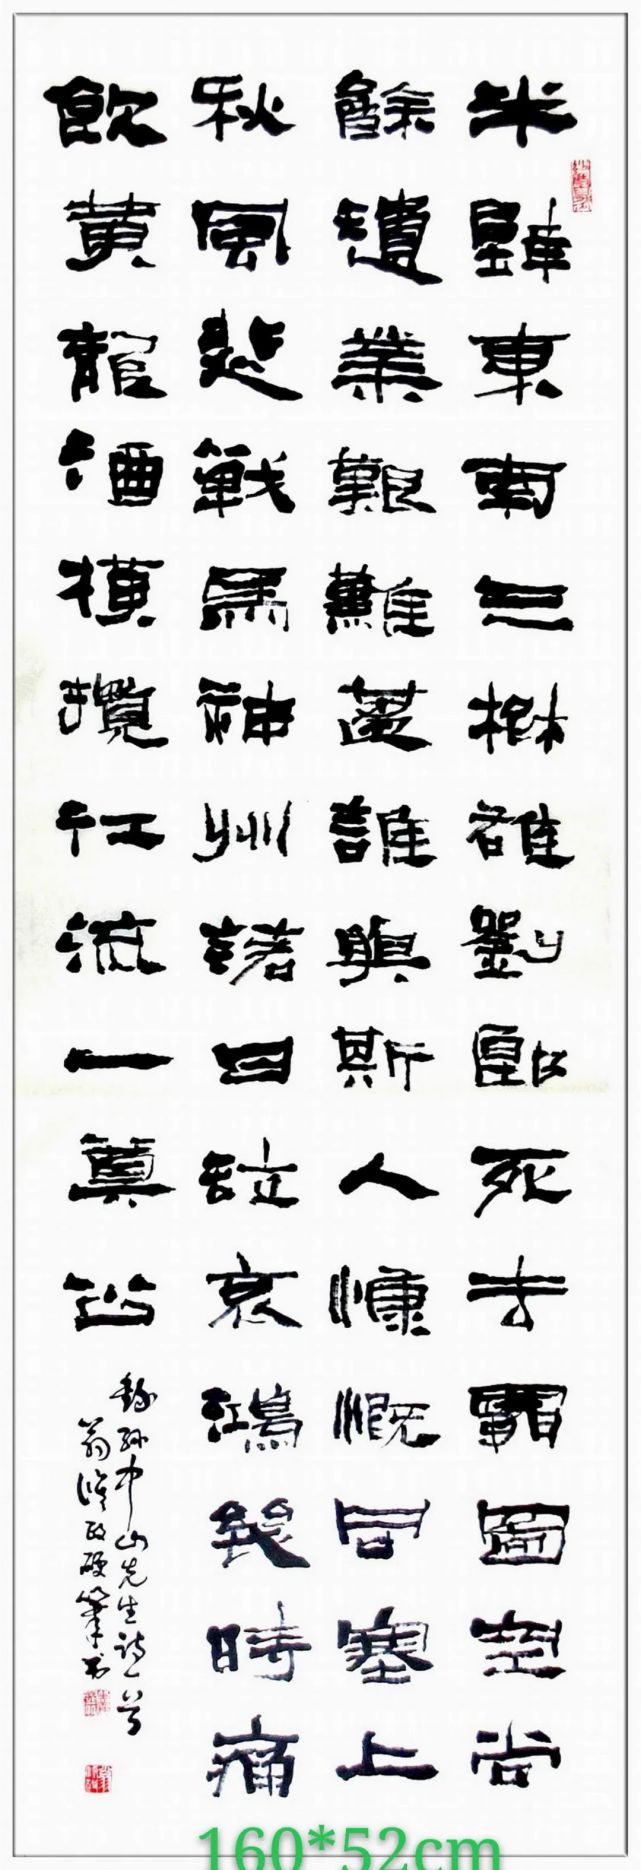 半壁東南三楚雄劉郎死去霸圖空尚
餘遺業艱難甚誰與斯人慷慨同塞上
秋風悲戰馬神州落日泣哀鴻幾時痛
飲黃龍酒橫攬江流一奠公
錄孫中山先生詩一首
翁漢政硬筆书
160*52cm